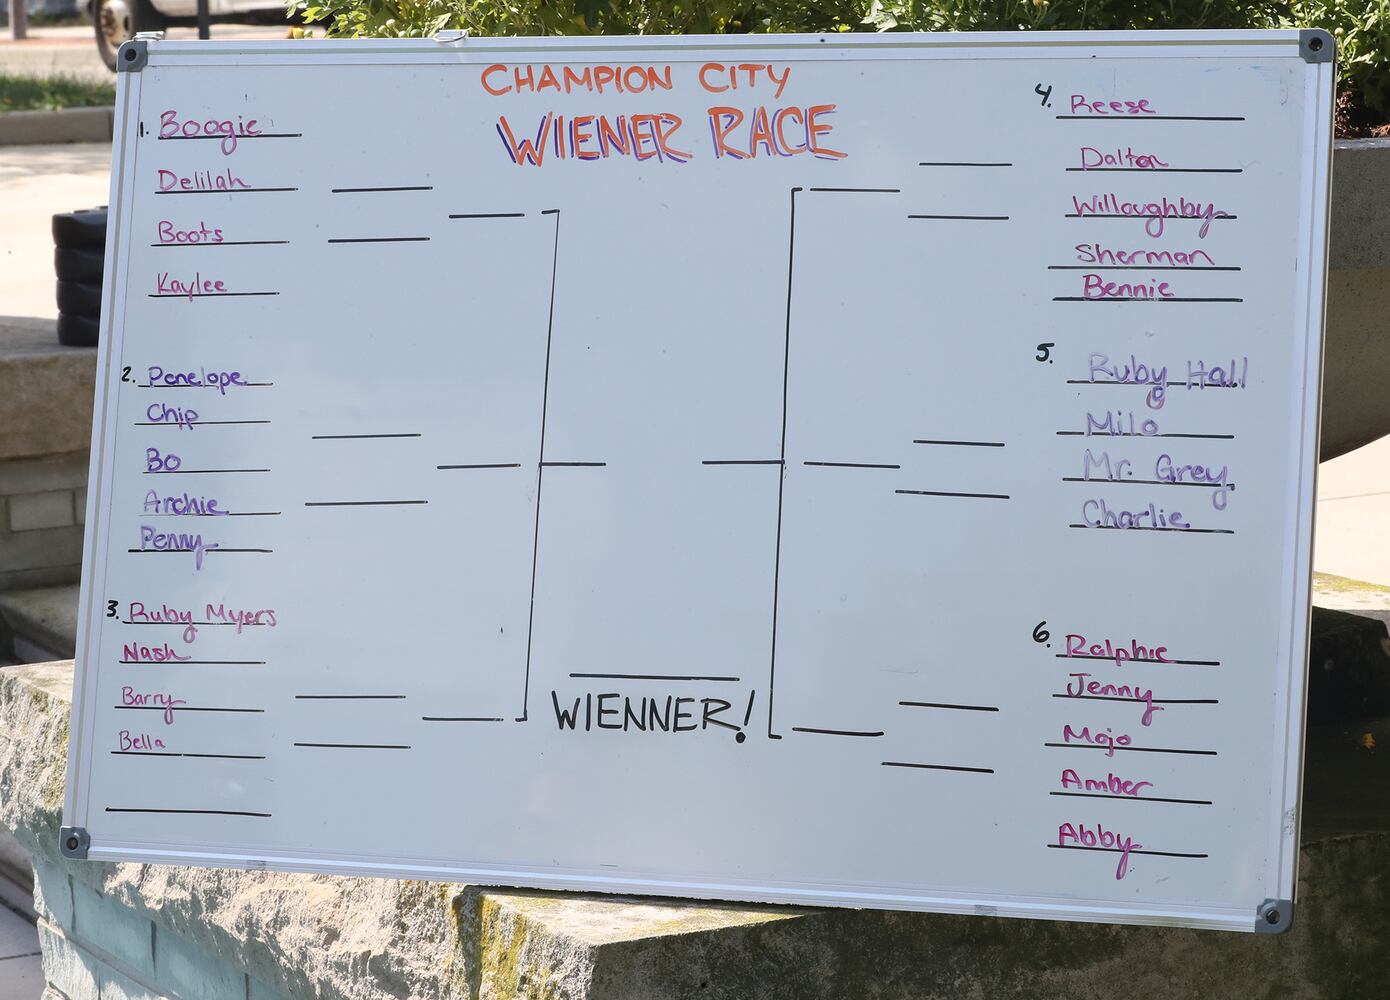 CHAMPION CITY
WIENER RACE
1. Boogie
Delilah
Boots
Kaylee
2. Penelope
Chip
Bo
Archie
Penny
3. Ruby Myers
Nash
Barry
Bella
4. Reese
Dalton
Willoughby
Sherman
Bennie
5. Ruby Hall
Milo
Mr. Grey
Charlie
6. Ralphie
Jenny
Mojo
Amber
Abby
WIENNER!